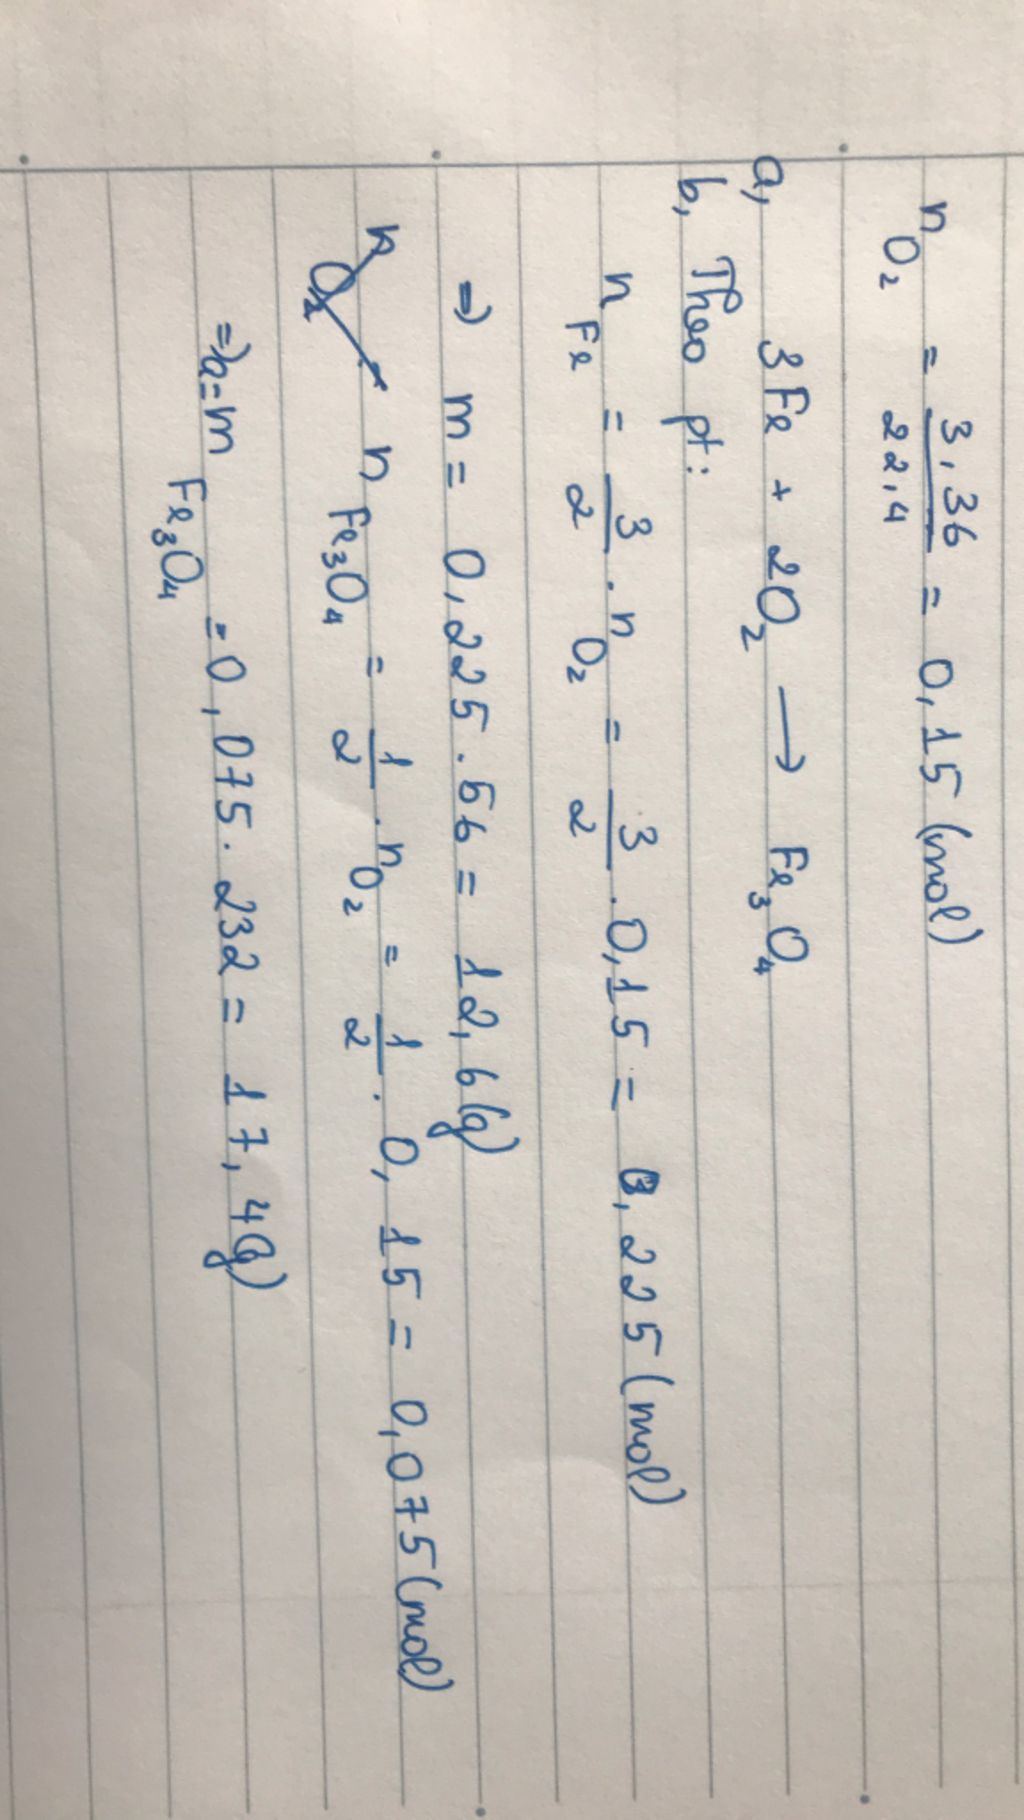 n O₂ = 3,36/22,4 = 0,15 (mol)
a, 3Fe + 2O₂ → Fe₃O₄
b, Theo pt:
n Fe = 3/2 . n O₂ = 3/2 . 0,15 = 0,225 (mol)
⇒ m = 0,225 . 56 = 12,6 (g)
n Fe₃O₄ = 1/2 . n O₂ = 1/2 . 0,15 = 0,075 (mol)
⇒ a = m Fe₃O₄ = 0,075 . 232 = 17,4 (g)